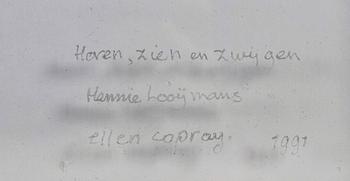 Horen, zien en zwijgen
Hennie Looÿmans
ellen copray. 1991